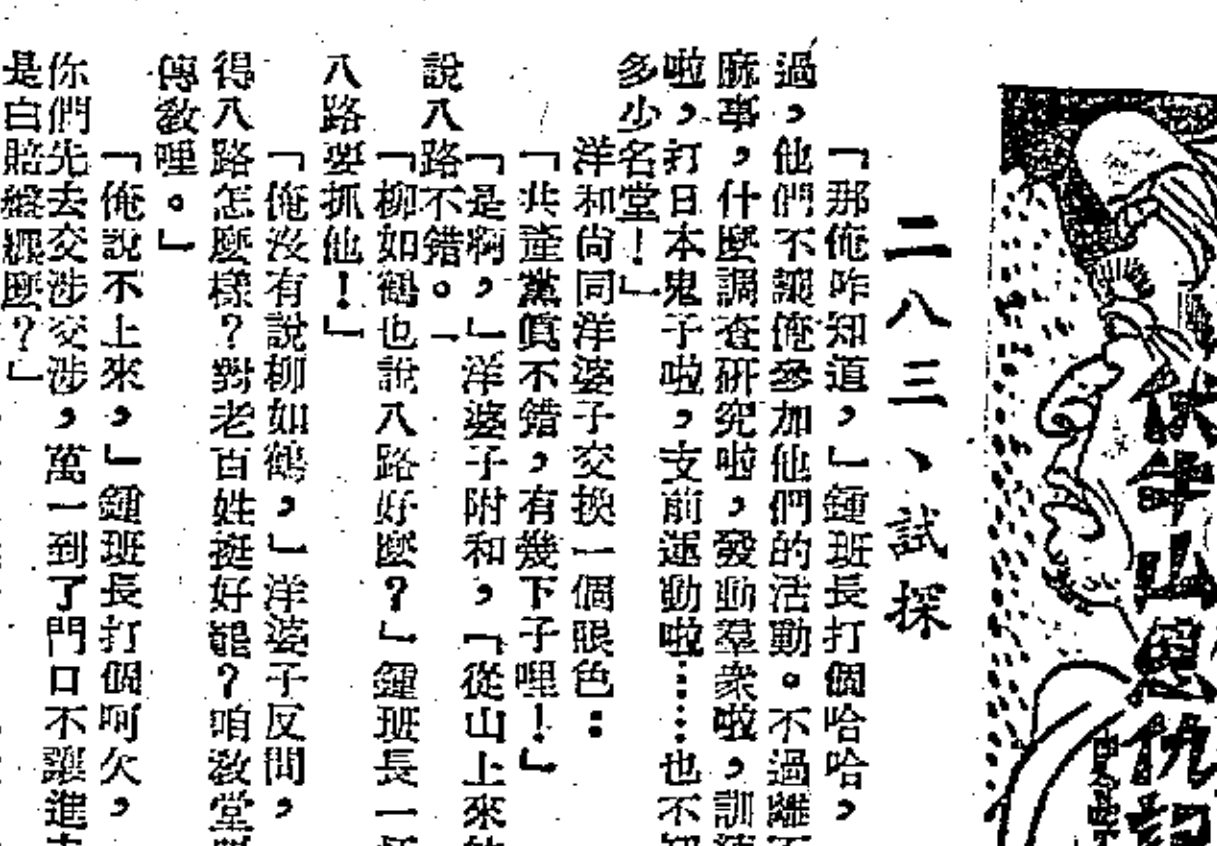 伏牛山恩仇記
二八三、試探
「那俺咋知道，」鍾班長打個哈哈，
過，他們不讓俺參加他們的活動。不過離不
麻事，什麼調查研究啦，發動羣衆啦，訓
啦，打日本鬼子啦，支前運動啦……也不知
多少名堂！」
洋和尚同洋婆子交換一個眼色：
「共產黨真不錯，有幾下子哩！」
「是啊，」洋婆子附和，「從山上來的
說八路不錯。」
「柳如鶴也說八路好麼？」鍾班長一
八路要抓他！」
「俺沒有說柳如鶴，」洋婆子反問，
得八路怎麼樣？對老百姓挺好罷？咱教堂
傳教哩。」
「俺說不上來，」鍾班長打個呵欠，
你們先去交涉交涉，萬一到了門口不讓進去
是白賠盤纏麼？」